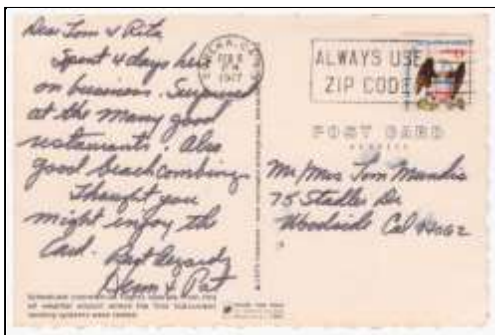 Dear Tom & Rita
Spent 4 days here
on business. Surprised
at the many good
restaurants. Also
good beachcombing.
Thought you
might enjoy the
Card. Best Regards
& Pat
FEB 8
PM
1977
ALWAYS USE
ZIP CODE
POST CARD
ADDRESS
Mr/Mrs Tom
75 Stadler Dr
Woodside Cal